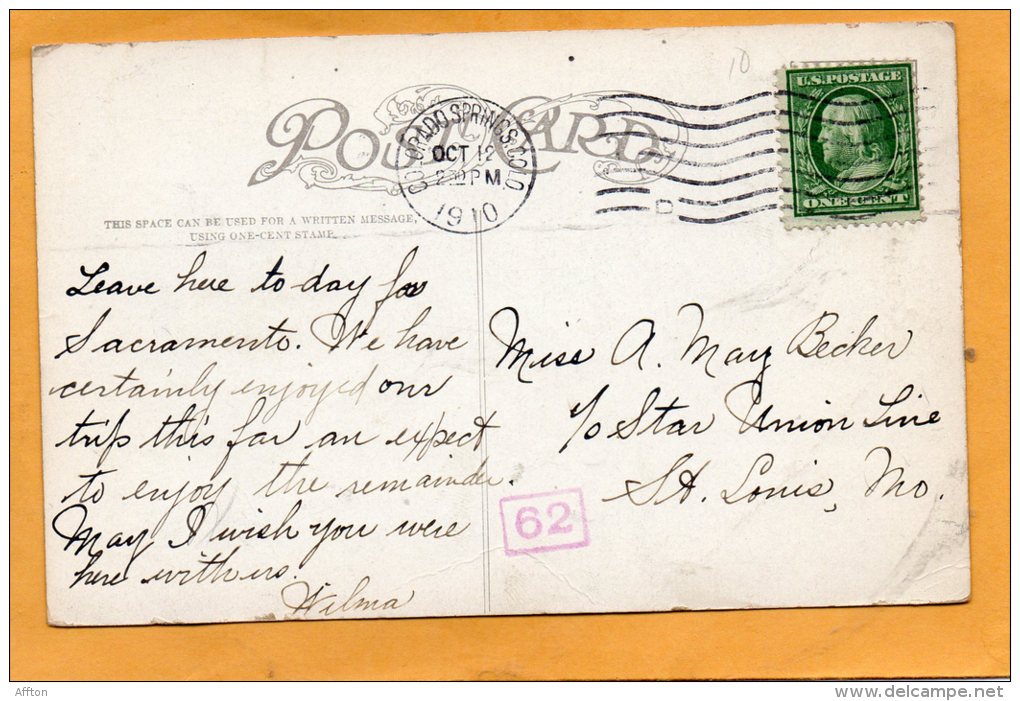 10
U.S. POSTAGE
POST CARD
COLORADO SPRINGS, COLO.
OCT 12
2 PM
1910
D
ONE CENT
THIS SPACE CAN BE USED FOR A WRITTEN MESSAGE,
USING ONE-CENT STAMP.
Leave here to-day for
Sacramento. We have
certainly enjoyed our
trip this far an expect
to enjoy the remainder.
May I wish you were
here with us.
Wilma
Miss A. May Becker
c/o Star Union Line
St. Louis, Mo.
62
Affton
http://www.delcampe.net